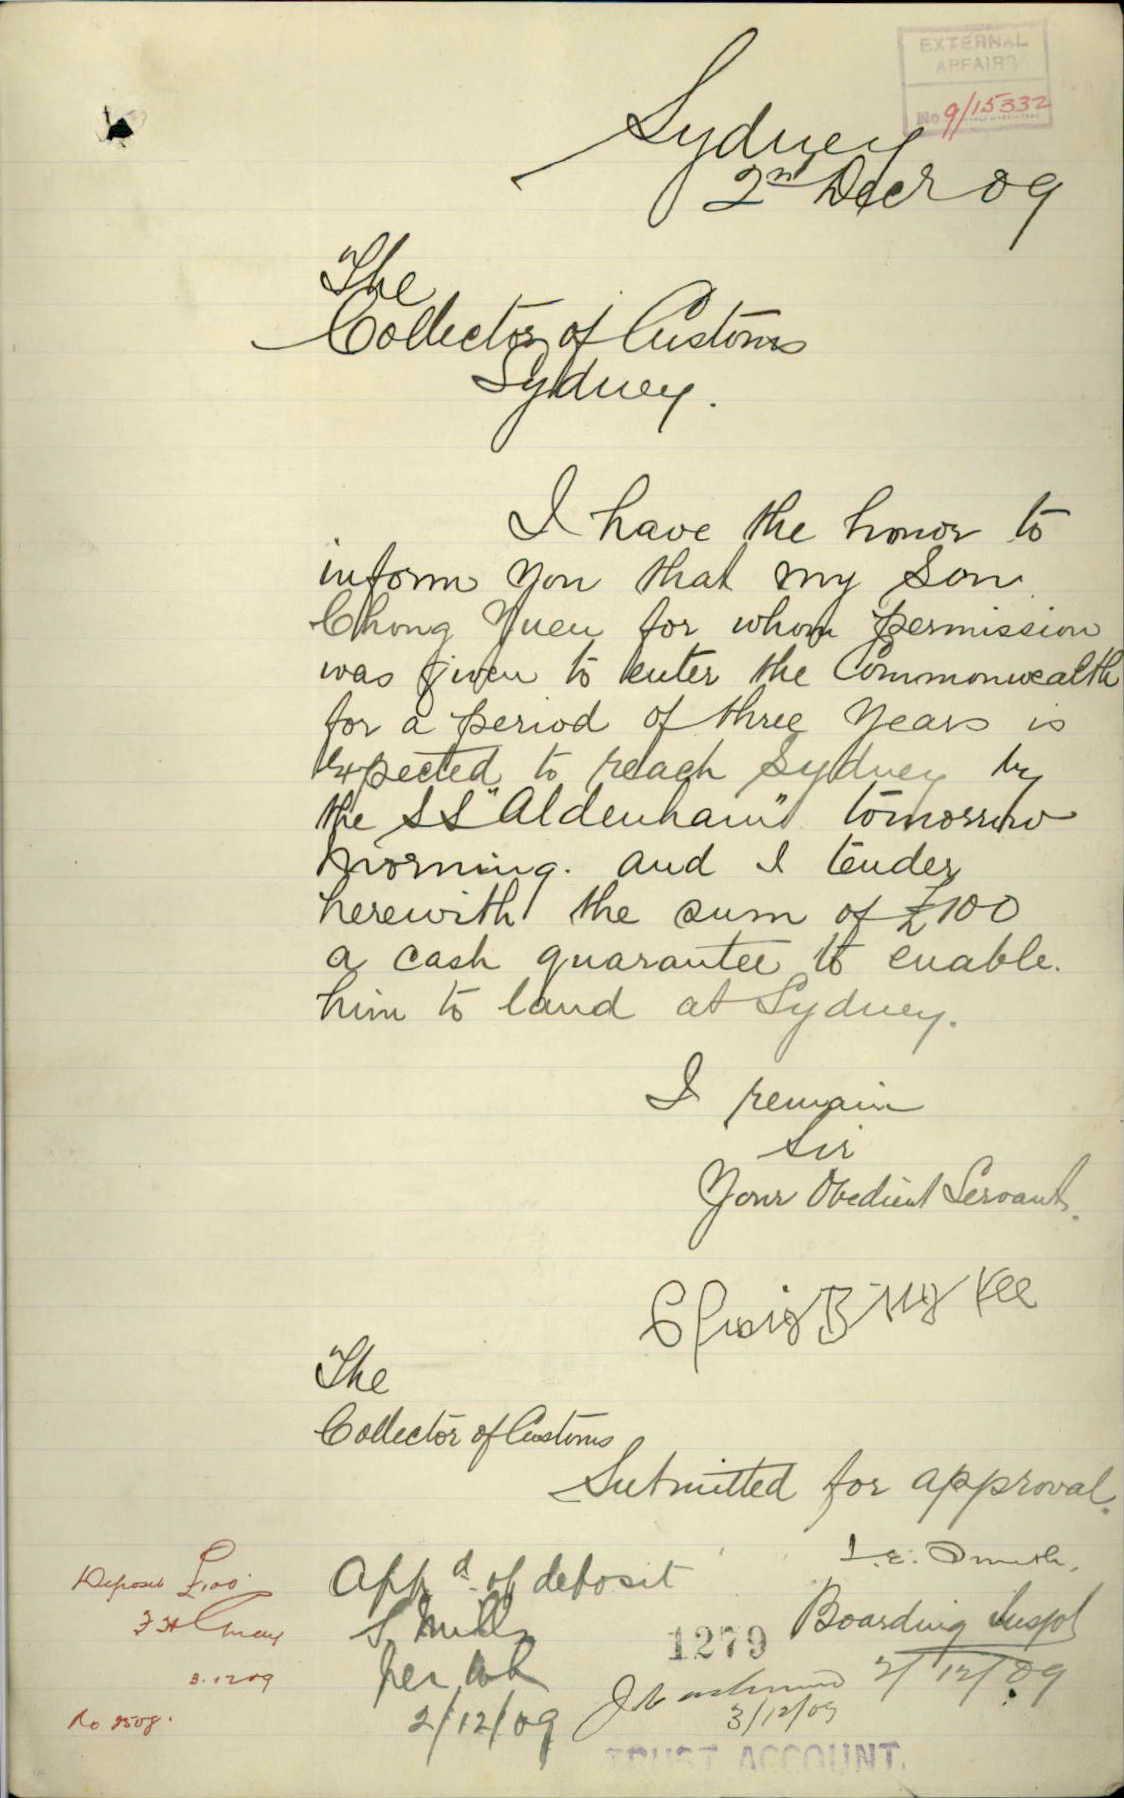 EXTERNAL
AFFAIRS
No 9/15332
Sydney
2nd Decr 09
The
Collector of Customs
Sydney.
I have the honor to
inform you that my Son
Chong Yuen for whom permission
was given to enter the Commonwealth
for a period of three years is
expected to reach Sydney by
the SS "Aldenham" tomorrow
morning. and I tender
herewith the sum of £100
a cash guarantee to enable.
him to land at Sydney.
I remain
Sir
Your Obedient Servant.
Kee
The
Collector of Customs
Submitted for approval.
Appd. of deposit
S Mills
per
2/12/09
Boarding Inspr
2/12/09
1279
3/12/09
TRUST ACCOUNT.
Deposit £100.
3.12 09